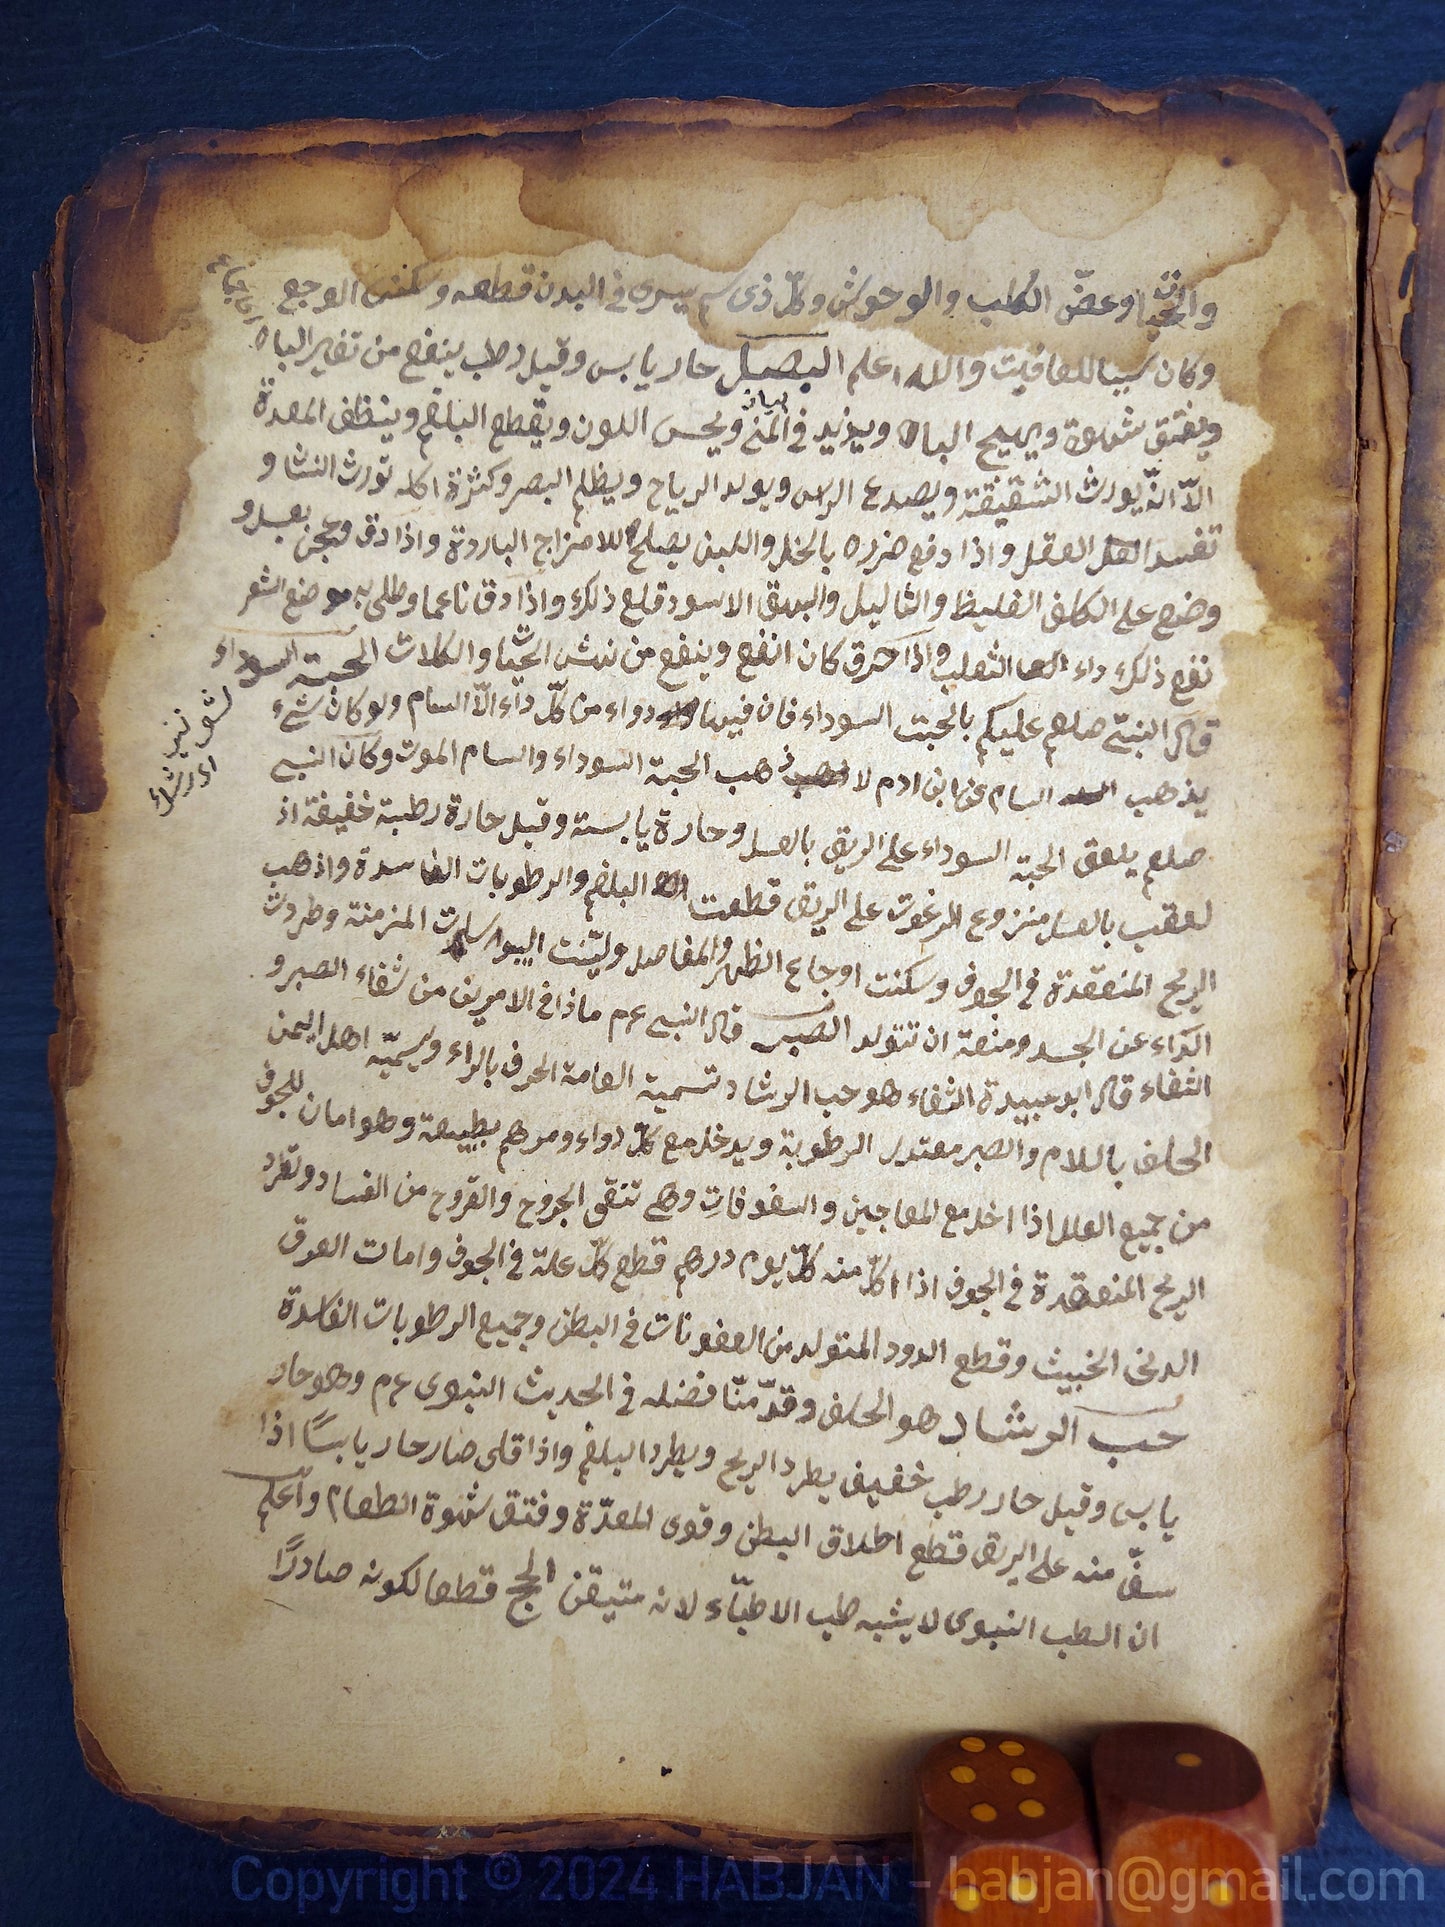 والحيات وعضّ الكلب والوحوش وكلّ ذى سم يسرى فى البدن قطعه وسكنت الوجع
وكان سببا للعافيت والله اعلم البصل حار يابس وقيل رطب ينفع من تغير الباه
ويفتق شهوة ويهيج الباه ويزيد فى المنى ويحسن اللون ويقطع البلغم وينظف المعدة
الاّ انّه يورث الشقيقة ويصدع الراس ويولد الرياح ويظلم البصر وكثرة اكله تورث النشا و
تفسد العقل واذا دفع ضرره بالخل واللبن يصلح للامزاج الباردة واذا دق وعجن بعسل و
وضع على الكلف الغليظ والثاليل والبهق الاسود قلع ذلك واذا دق ناعما وطلى به موضع الشعر
نفع ذلك داء الثعلب واذا حرق كان انفع وينفع من نهش الحيات والكلاب الحبة السوداء
قال النبىّ صلعم عليكم بالحبت السوداء فان فيها دواء من كلّ داء الاّ السام ولو كان شىء
يذهب السام عن ابن ادم لاذهب الحبة السوداء والسام الموت وكان النبى
صلعم يلعق الحبة السوداء على الريق بالعسل وحارة يابسة وقيل حارة رطبة خفيفة اذ
لعقب بالعسل منزوع الرغوت على الريق قطعت البلغم والرطوبات الفاسدة واذهب
الريح المنعقدة فى الجوف وسكنت اوجاع الظهر والمفاصل وليّنت اليبوسات المزمنة وطردت
الداء عن الجسد ومنعة ان تتولد الصبر قال النبى عم ماذا فى الامرين من شفاء الصبر و
الثفاء قال ابو عبيدة الثفاء هو حب الرشاد تسمية العامة الحرف بالراء ويسميّه اهل اليمن
الحلف باللام والصبر معتدل الرطوبة ويدخل مع كلّ دواء ومرهم بطبيعة وهو امان للجوف
من جميع العلل اذا اخد مع المعاجين والسفوفات وهى تنقى الجروح والقروح من الفساد وتطرد
الريح المنعقدة فى الجوف اذا اكل منه كلّ يوم درهم قطع كلّ علة فى الجوف وامات العرق
الدنى الخبيث وقطع الدود المتولد من العفونات فى البطن وجميع الرطوبات الفاسدة
حب الرشاد هو الحلف وقدّمنّا فضله فى الحديث النبوى عم وهو حار
يابس وقيل حار رطب خفيف يطرد الريح ويطرد البلغم واذا قلى صار حار يابسًا اذا
سفّ منه على الريق قطع اطلاق البطن وقوى المعدّة وفتق شهوة الطعام واعلم
ان الطب النبوى لا يشبه طب الاطبّاء لانه متيقن الحج قطعا لكونه صادرًا